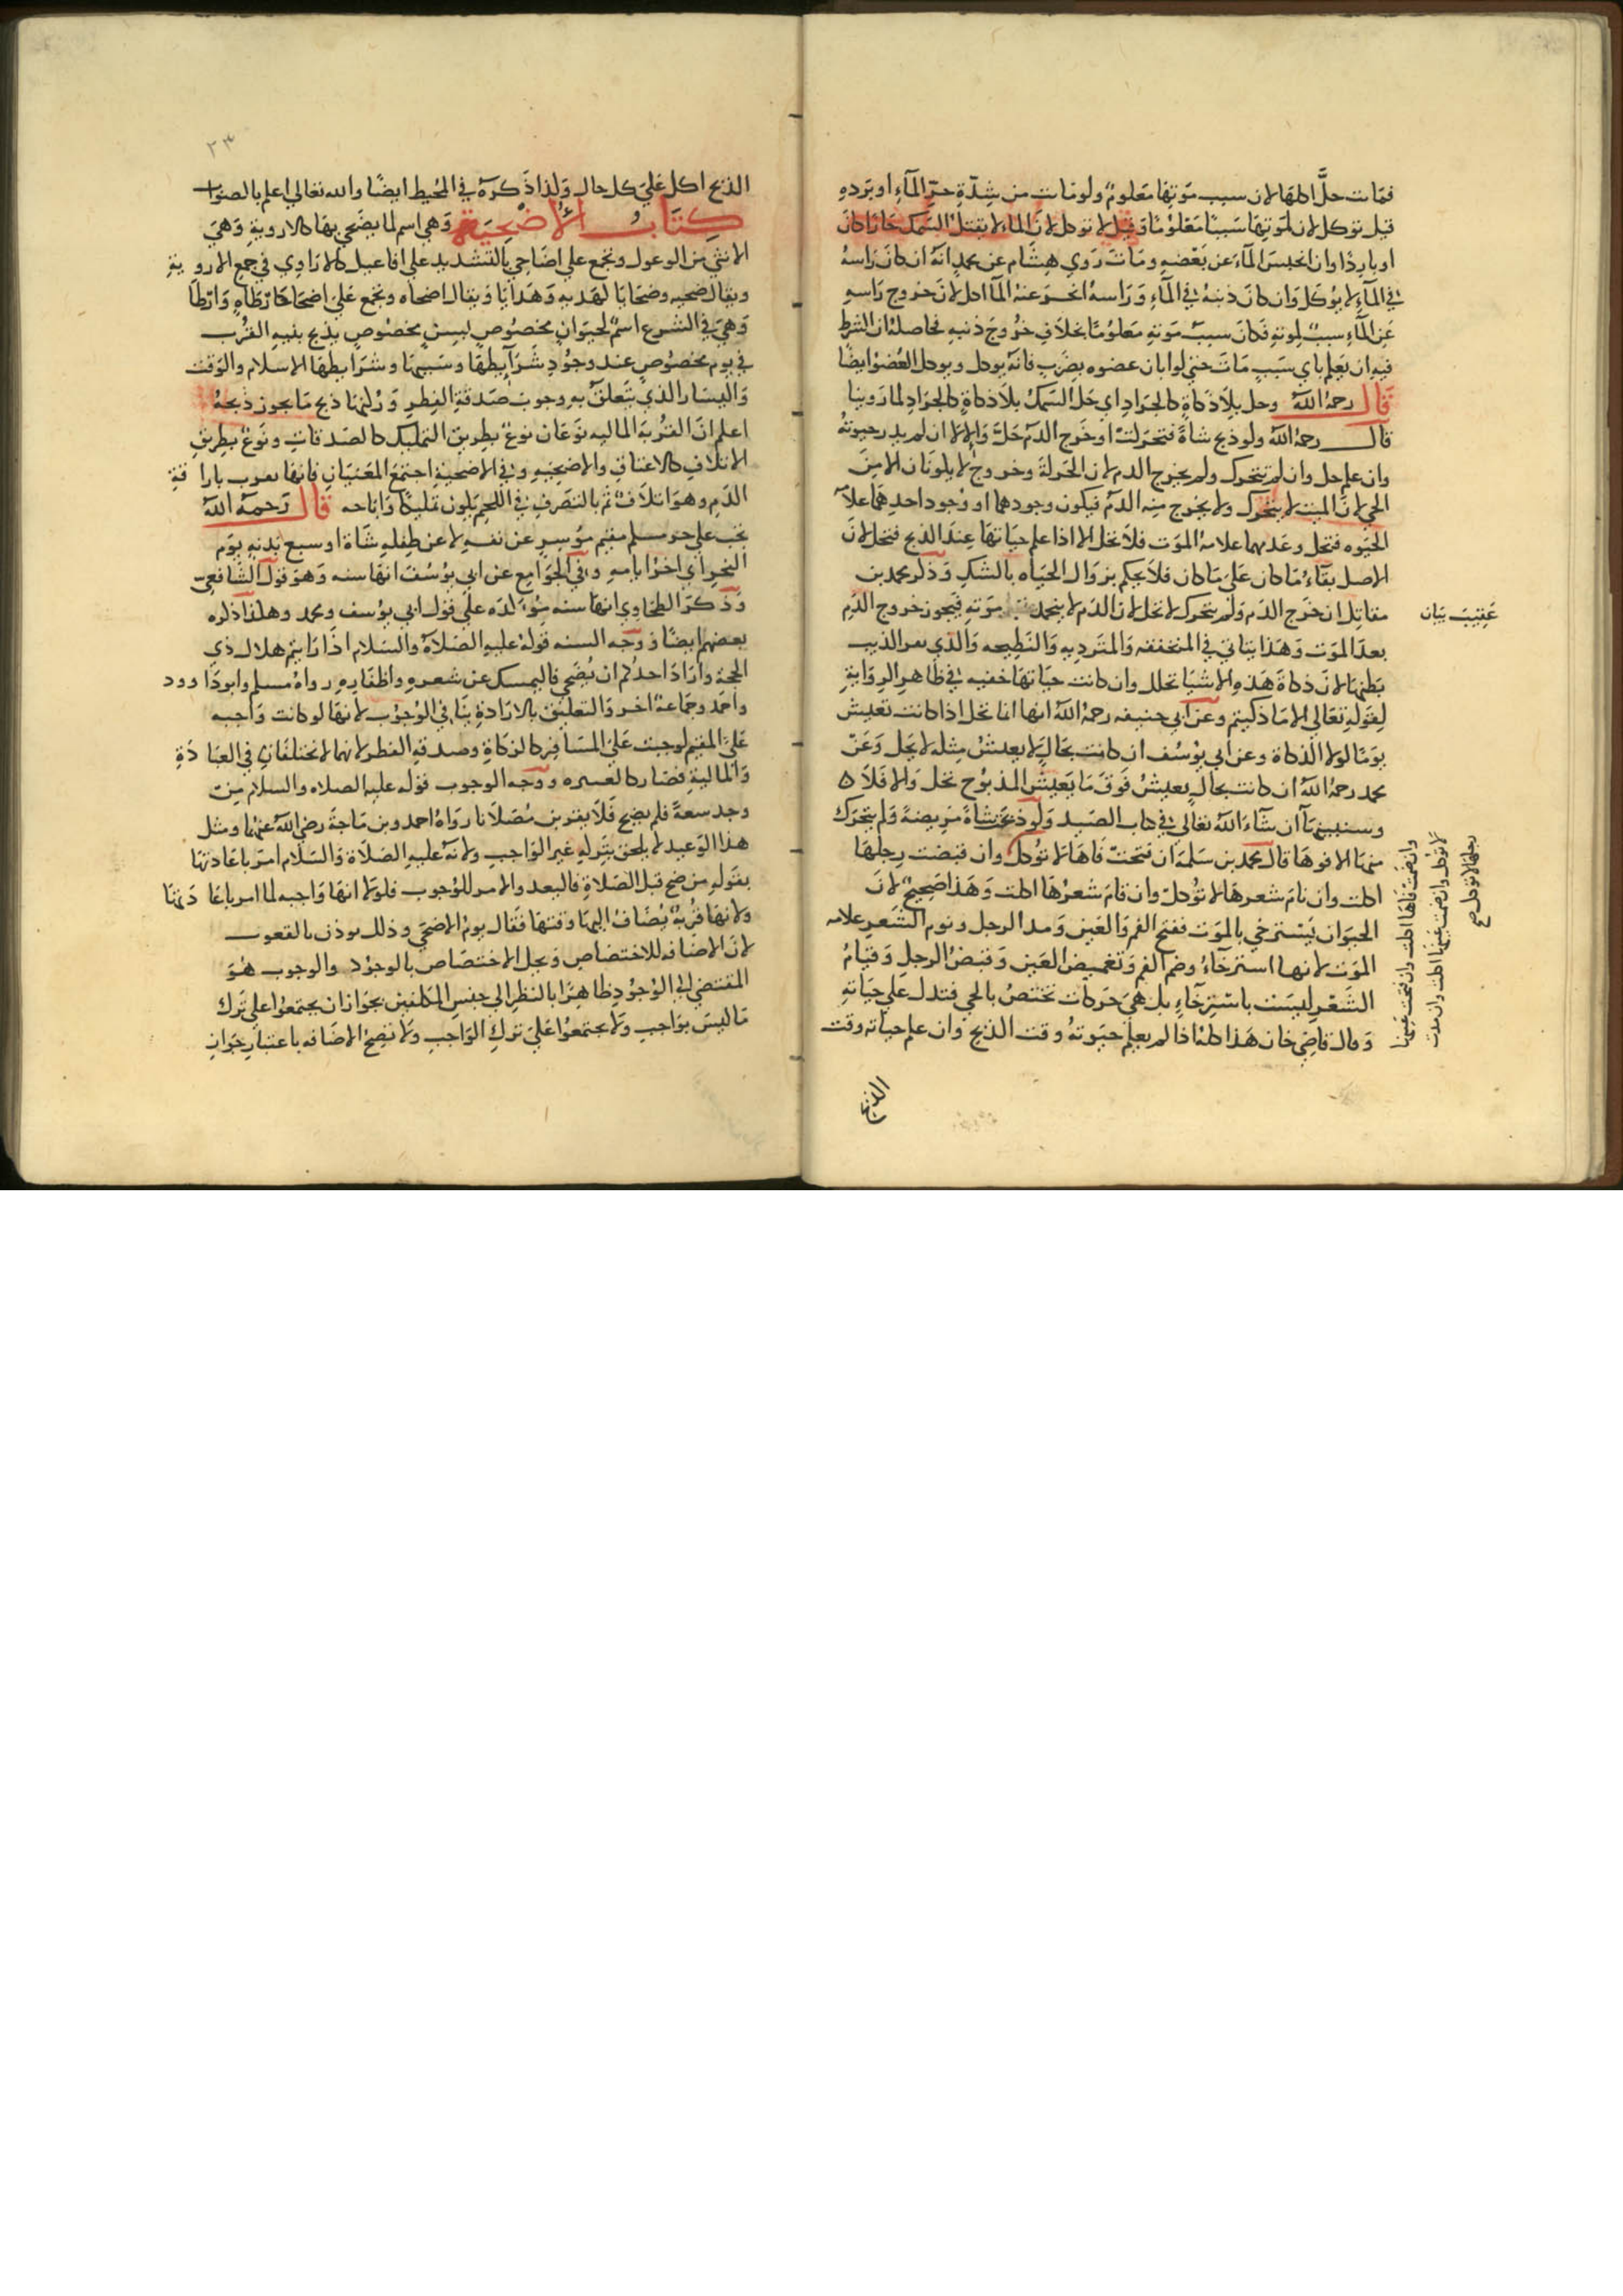 فمات حل اكلها لان سبب موتها معلوم ولو مات من شدة حر الماء او برده
قيل توكل لان لموتها سببا معلوما وقيل لا توكل لان الماء لا يقتل السمك حارا كان
او باردا وان انحبس الماء عن بعضه ومات روي هشام عن محمد انه ان كان راسه
في الماء لا يؤكل وان كان ذنبه في الماء وراسه انحسر عنه الماء اكل لان خروج راسه
عن الماء سبب لموته فكان سبب موته معلوما بخلاف خروج ذنبه فحاصله ان الشرط
فيه ان يعلم باي سبب مات حتى لو ابان عضوه بضرب فانه يوكل ويوكل العضو ايضا
قال رحمه الله وحل بلا ذكاة كالجراد اي حل السمك بلا ذكاة كالجراد لما روينا
قال رحمه الله ولو ذبح شاة فتحركت او خرج الدم حلت والا لا ان لم يدر حيوته
وان علم حل وان لم تتحرك ولم يخرج الدم لان الحركة وخروج لا يكونان الا من
الحي لان الميت لا يتحرك ولا يخرج منه الدم فيكون وجودهما او وجود احدهما علامة
الحيوه فتحل وعدمهما علامة الموت فلا تحل الا اذا علم حياتها عند الذبح فتحل لان
الاصل بقاء ما كان على ما كان فلا يحكم بزوال الحياه بالشك وذكر محمد بن
مقاتل ان خرج الدم ولم يتحرك لا تحل لان الدم لا ينجمد موته فيجوز خروج الدم
عقيب بيان
بعد الموت وهذا يتاتي في المنخنقه والمترديه والنطيحه والذي بقر الذيب
بطنها لان ذكاة هذه الاشيا تحلل وان كانت حياتها خفيه في ظاهر الرواية
لقوله تعالى الا ما ذكيتم وعن ابي حنيفه رحمه الله انها انما تحل اذا كانت تعيش
يوما لولا الذكاة وعن ابي يوسف ان كانت بحال لا يعيش مثله لا يحل وعن
محمد رحمه الله ان كانت بحال يعيش فوق ما يعيش المذبوح تحل والا فلا ه
وسنبينها ان شاء الله تعالى في كتاب الصيد ولو ذبحت شاة مريضة ولم يتحرك
منها الا فوها قال محمد بن سلمة ان فتحت فاها لا توكل وان قبضت رجلها
اكلت وان نام شعرها لا توكل وان قام شعرها اكلت وهذا صحيح لان
الحيوان يسترخي بالموت ففتح الفم والعين ومد الرجل ونوم الشعر علامه
الموت لانها استرخاء وضم الفم وتغميض العين وقبض الرجل وقيام
الشعر ليست باسترخاء بل هي حركات تختص بالحي فتدل علي حياته
وقال قاضي خان هذا كله اذا لم يعلم حيوته وقت الذبح وان علم حياته وقت
وان ضمت فاها اكلت وان فتحت عينها
لا توكل وان ضمت عينها اكلت وان مدت
رجلها لا توكل صح
الذبح
٢٣
الذبح اكل على كل حال ولذا ذكره في المحيط ايضا والله تعالى اعلم بالصواب
كتاب الاضحية وهي اسم لما يضحي بها كالاروية وهي
الانثي من الوعول وتجمع علي اضاحي بالتشديد علي افاعيل كالاراوي في جمع الاروية
ويقال ضحيه وضحايا كهديه وهدايا ويقال اضحاه وتجمع على اضحا كارطاه وارطا
وهي في الشرع اسم لحيوان مخصوص بسن مخصوص يذبح بنيه القرب
في يوم مخصوص عند وجود شرايطها وسببها وشرايطها الاسلام والوقت
واليسار الذي يتعلق به وجوب صدقة الفطر وركنها ذبح ما يجوز ذبحه
اعلم ان القربة الماليه نوعان نوع بطريق التمليك كالصدقات ونوع بطريق
الاتلاف كالاعتاق والاضحيه وفي الاضحية اجتمع المعنيان فانها تقرب باراقة
الدم وهو اتلاف ثم بالتصرف في اللحم يكون تمليكا واباحه قال رحمه الله
تجب علي حر مسلم مقيم موسر عن نفسه لا عن طفله شاة او سبع بدنه يوم
النحر اي اخر ايامه وفي الجوامع عن ابي يوسف انها سنه وهو قول الشافعي
وذكر الطحاوي انها سنه موكده علي قول ابي يوسف ومحمد وهكذا ذكره
بعضهم ايضا ووجه السنه قوله عليه الصلاة والسلام اذا رايتم هلال ذي
الحجة واراد احدكم ان يضحي فاليمسك عن شعره واظفاره رواه مسلم وابو داوود
واحمد وجماعة اخر والتعليق بالارادة ينافي الوجوب لانها لو كانت واجبه
على المقيم لوجبت على المسافر كالزكاة وصدقه الفطر لانهما لا يختلفان في العبادة
والمالية فصار كالعتيره ووجه الوجوب قوله عليه الصلاه والسلام من
وجد سعة فلم يضح فلا يقربن مصلانا رواه احمد وبن ماجة رضي الله عنهما ومثل
هذا الوعيد لا يلحق بترك غير الواجب ولانه عليه الصلاة والسلام امر باعادتها
بقوله من ضح قبل الصلاة فاليعد والامر للوجوب فلولا انها واجبه لما امر باعادتها
ولانها قربة يضاف اليها وقتها فقال يوم الاضحى وذلك يوذن بالوجوب
لان الاضافه للاختصاص وبجل الاختصاص بالوجود والوجوب هو
المقتضي الى الوجود ظاهرا بالنظر الى جنس المكلفين بجواز ان يجتمعوا على ترك
ما ليس بواجب ولا يجتمعوا على ترك الواجب ولا تصح الاضافه باعتبار جواز